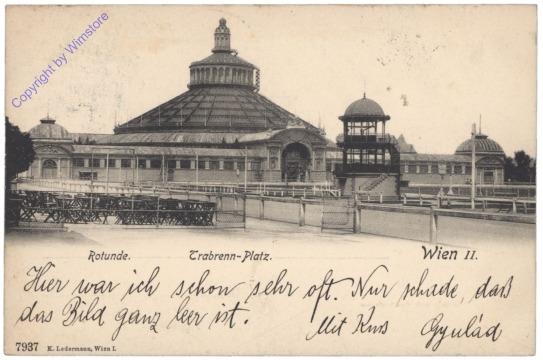 Copyright by Wimstore
Rotunde. Trabrenn-Platz. Wien II.
Hier war ich schon sehr oft. Nur schade, daß
das Bild ganz leer ist. Mit Kuss Gyulád
7937 K. Ledermann, Wien I.